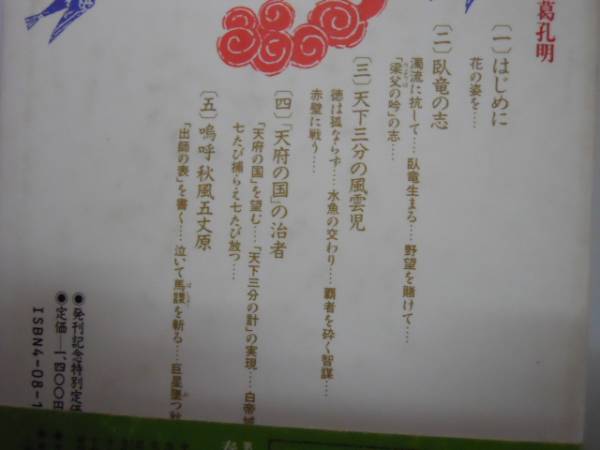 葛孔明
〔一〕はじめに
花の姿を……
〔二〕臥竜の志
濁流に抗して……臥竜生まる……野望を賭けて……
「梁父の吟」の志……
〔三〕天下三分の風雲児
徳は孤ならず……水魚の交わり……覇者を砕く智謀……
赤壁に戦う……
〔四〕「天府の国」の治者
「天府の国」を望む……「天下三分の計」の実現……白帝城
七たび捕らえ七たび放つ……
〔五〕嗚呼秋風五丈原
「出師の表」を書く……泣いて馬謖を斬る……巨星墜つ秋
●発刊記念特別定価
●定価—1,400円
ISBN4-08-1